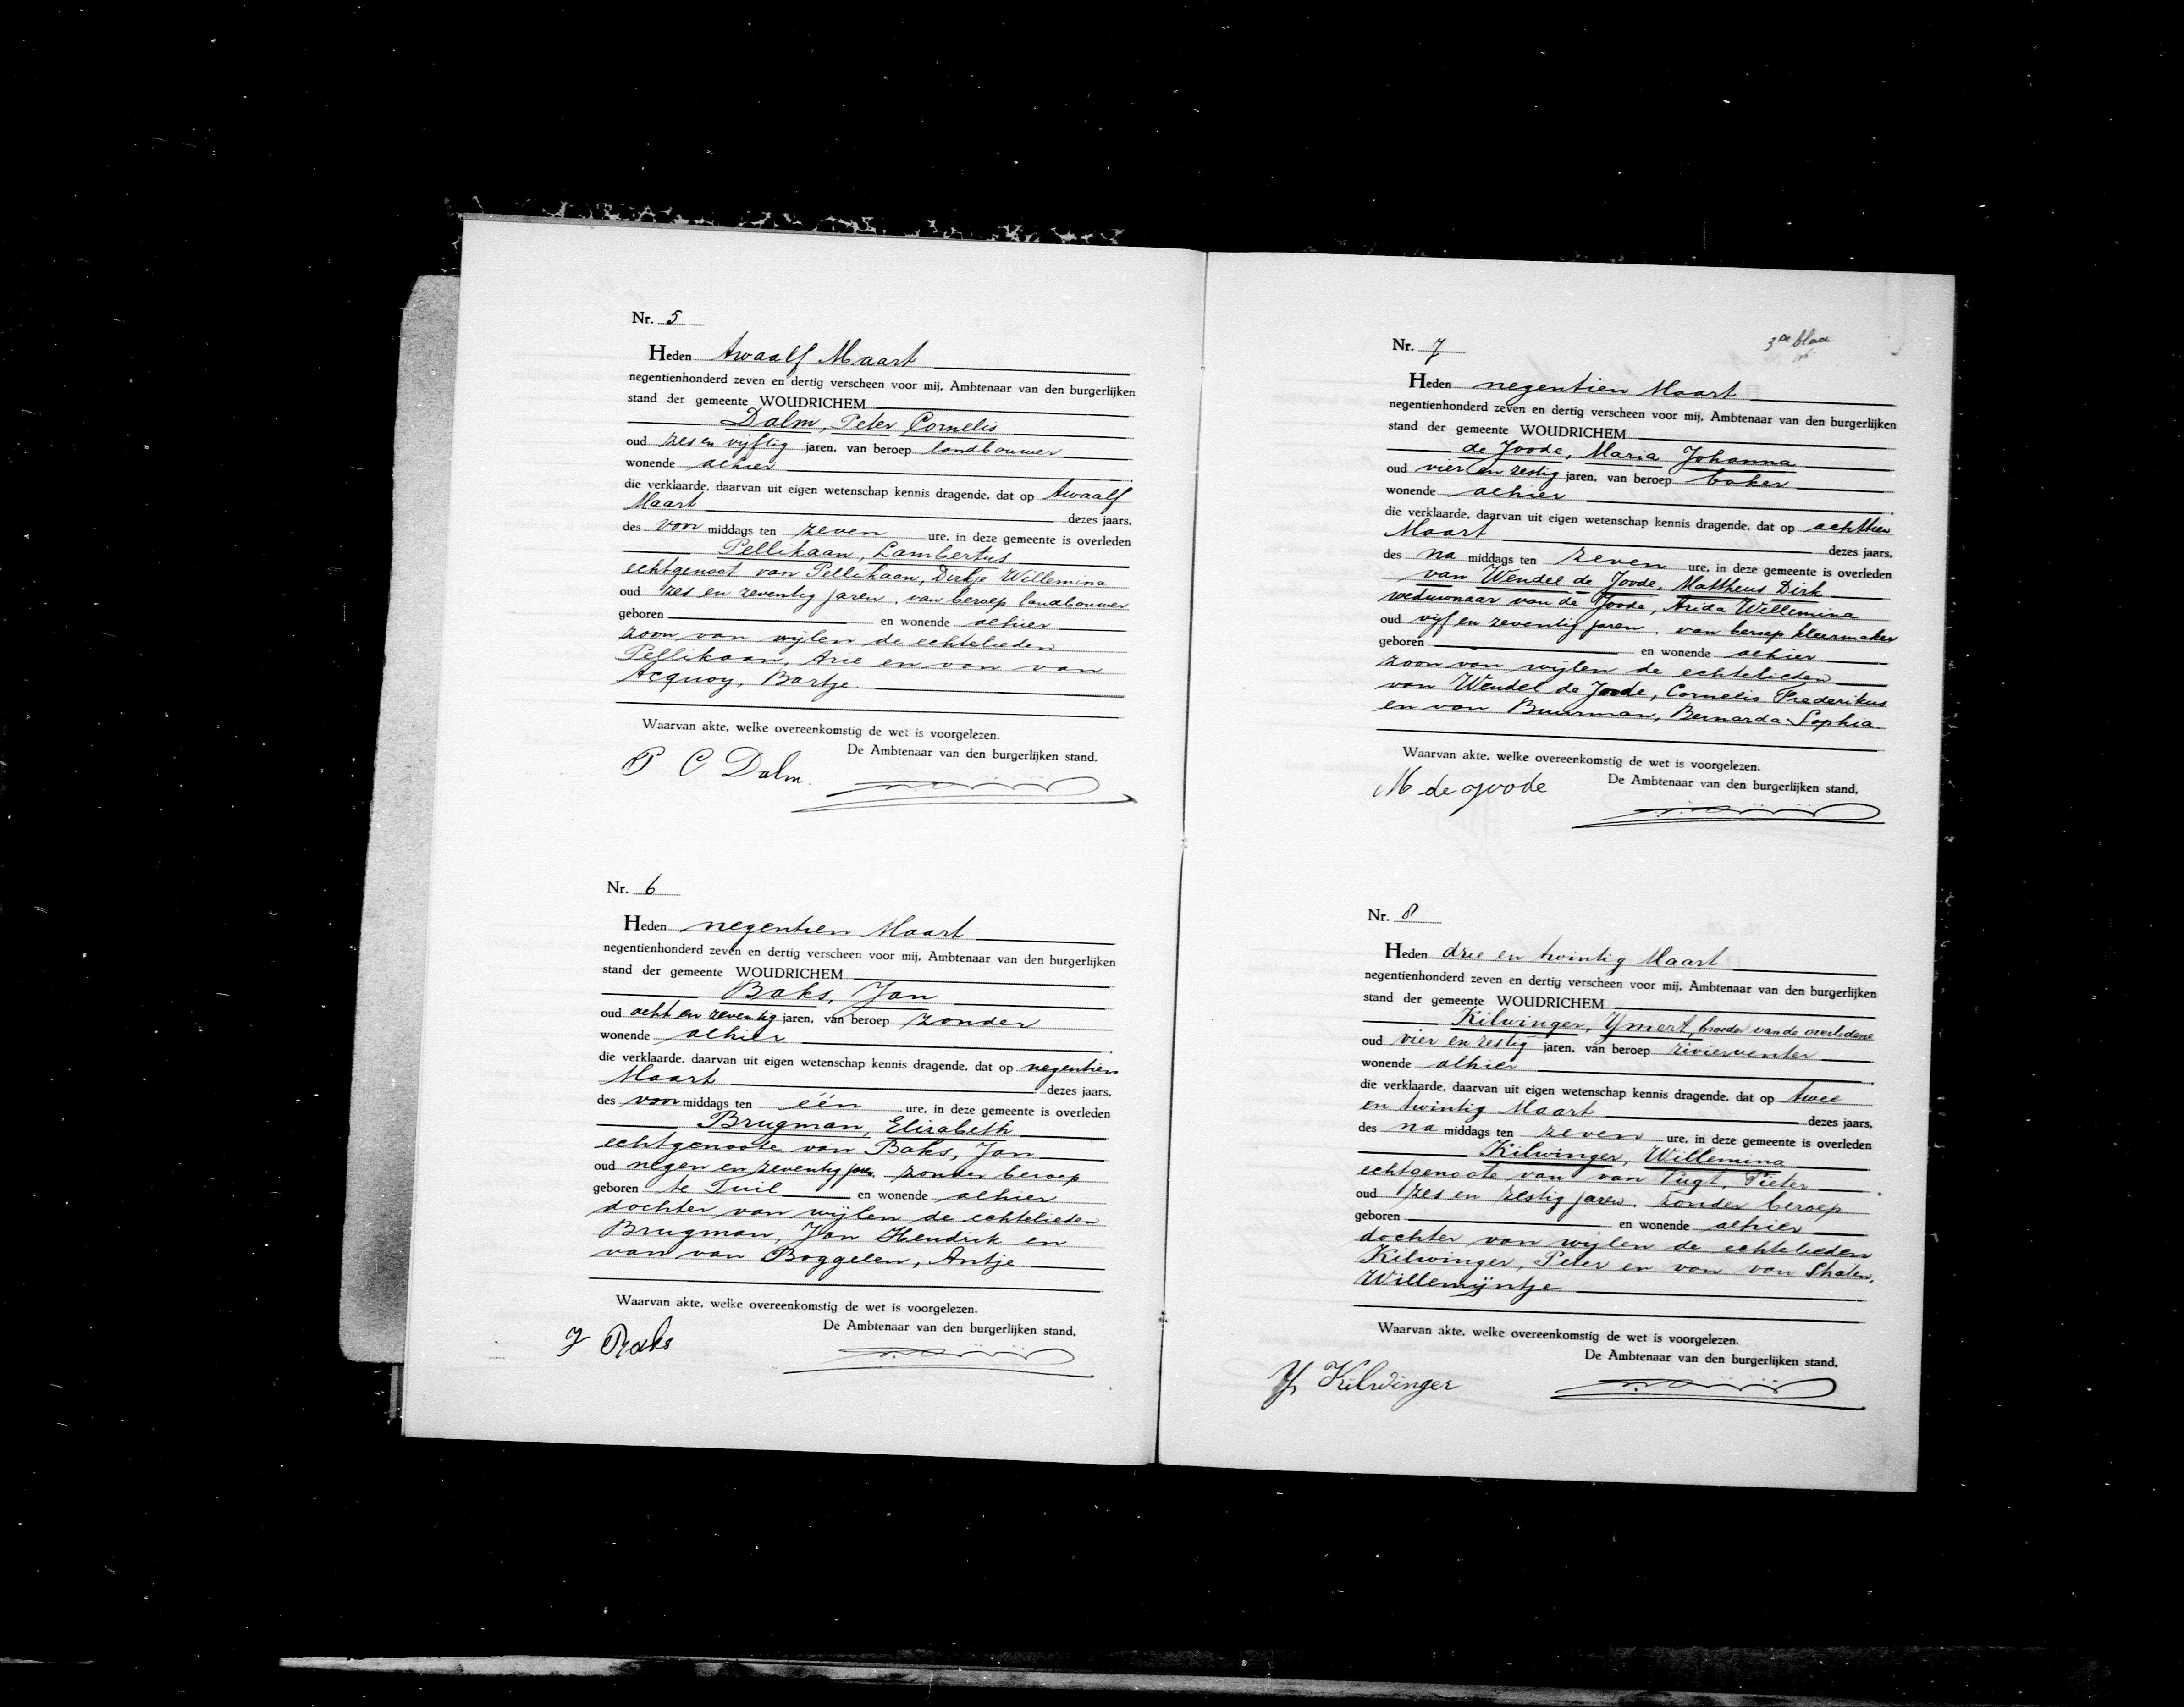 Nr. 5
Heden twaalf Maart
negentienhonderd zeven en dertig verscheen voor mij, Ambtenaar van den burgerlijken
stand der gemeente WOUDRICHEM
Dalm, Peter Cornelis
oud zes en vijftig jaren, van beroep landbouwer
wonende alhier
die verklaarde, daarvan uit eigen wetenschap kennis dragende, dat op twaalf
Maart dezes jaars,
des voor middags ten zeven ure, in deze gemeente is overleden
Pellikaan, Lambertus
echtgenoot van Pellikaan, Dirkje Willemina
oud zes en zeventig jaren, van beroep landbouwer
geboren en wonende alhier
zoon van wijlen de echtelieden
Pellikaan, Arie en van van
Acquoy, Bartje.
Waarvan akte, welke overeenkomstig de wet is voorgelezen.
De Ambtenaar van den burgerlijken stand,
P C Dalm.
Nr. 6
Heden negentien Maart
negentienhonderd zeven en dertig verscheen voor mij, Ambtenaar van den burgerlijken
stand der gemeente WOUDRICHEM
Baks, Jan
oud acht en zeventig jaren, van beroep zonder
wonende alhier
die verklaarde, daarvan uit eigen wetenschap kennis dragende, dat op negentien
Maart dezes jaars,
des voor middags ten één ure, in deze gemeente is overleden
Brugman, Elizabeth
echtgenoote van Baks, Jan
oud negen en zeventig jaren, zonder beroep
geboren te Tuil en wonende alhier
dochter van wijlen de echtelieden
Brugman, Jan Hendrik en
van van Boggelen, Antje
Waarvan akte, welke overeenkomstig de wet is voorgelezen.
De Ambtenaar van den burgerlijken stand,
J Baks
3de blad
Nr. 7
Heden negentien Maart
negentienhonderd zeven en dertig verscheen voor mij, Ambtenaar van den burgerlijken
stand der gemeente WOUDRICHEM
de Joode, Maria Johanna
oud vier en zestig jaren, van beroep baker
wonende alhier
die verklaarde, daarvan uit eigen wetenschap kennis dragende, dat op achttien
Maart dezes jaars,
des na middags ten zeven ure, in deze gemeente is overleden
van Wendel de Joode, Mattheus Dirk
weduwnaar van de Joode, Arida Willemina
oud vijf en zeventig jaren, van beroep kleermaker
geboren en wonende alhier
zoon van wijlen de echtelieden
van Wendel de Joode, Cornelis Frederikus
en van Buurman, Bernarda Sophia
Waarvan akte, welke overeenkomstig de wet is voorgelezen.
De Ambtenaar van den burgerlijken stand,
M de Joode
Nr. 8
Heden drie en twintig Maart
negentienhonderd zeven en dertig verscheen voor mij, Ambtenaar van den burgerlijken
stand der gemeente WOUDRICHEM
Kilwinger, Ymert, broeder van de overledene
oud vier en zestig jaren, van beroep rivierventer
wonende alhier
die verklaarde, daarvan uit eigen wetenschap kennis dragende, dat op twee
en twintig Maart dezes jaars,
des na middags ten zeven ure, in deze gemeente is overleden
Kilwinger, Willemina
echtgenoote van van Vugt, Pieter
oud zes en zestig jaren, zonder beroep
geboren en wonende alhier
dochter van wijlen de echtelieden
Kilwinger, Peter en van van Straten,
Willemijntje
Waarvan akte, welke overeenkomstig de wet is voorgelezen.
De Ambtenaar van den burgerlijken stand,
Y Kilwinger